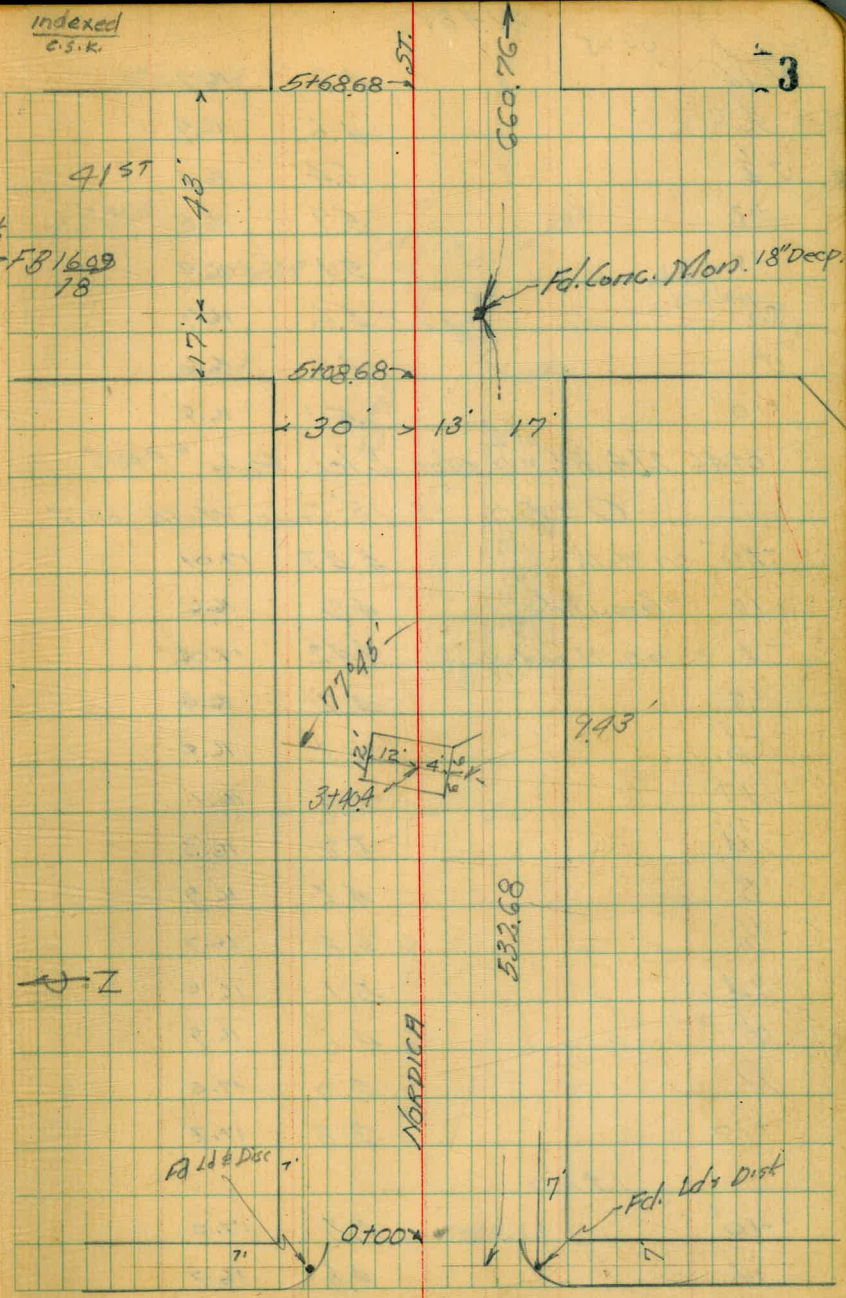 indexed
c.s.k.
3
5+68.68
ST.
660.76
41 ST
43'
FB 1609
78
17'
Fd. Conc. Mon. 18" Deep.
5+08.68
30'
13'
17'
77°45'
9.43'
12'
12'
4'
6
6
3+40.4
532.68
N
NORDICA
Fd Ld & Disc
7'
7'
0+00
7'
Fd. Ld & Disk
7'